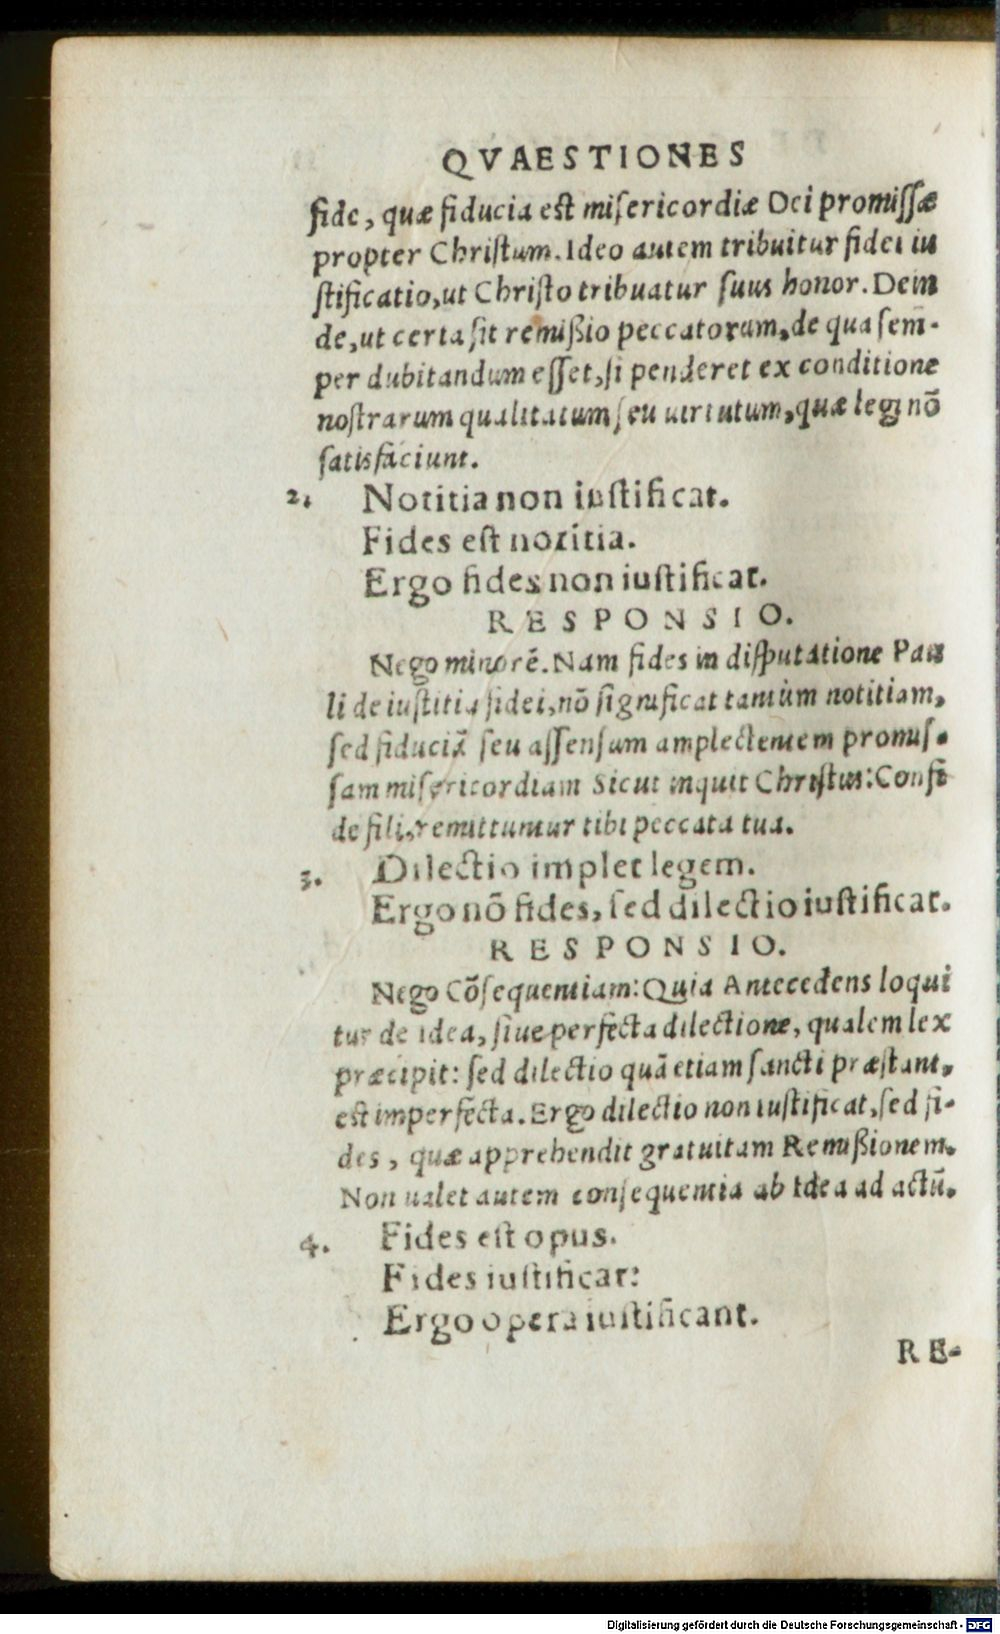 QVAESTIONES
fide, quæ fiducia est miſericordiæ Dei promiſſæ
propter Chriſtum. Ideo autem tribuitur fidei iu
ſtificatio, ut Chriſto tribuatur ſuus honor. Dein
de, ut certa ſit remißio peccatorum, de qua ſem-
per dubitandum eſſet, ſi penderet ex conditione
noſtrarum qualitatum ſeu uirtutum, quæ legi nõ
ſatisfaciunt.
2. Notitia non iuſtificat.
Fides eſt notitia.
Ergo fides non iuſtificat.
RESPONSIO.
Nego minorẽ. Nam fides in diſputatione Pau
li de iuſtitia fidei, nõ ſignificat tantùm notitiam,
ſed fiduciã ſeu aſſenſum amplectentem promiſ-
ſam miſericordiam Sicut inquit Chriſtus: Confi
de fili, remittuntur tibi peccata tua.
3. Dilectio implet legem.
Ergo nõ fides, ſed dilectio iuſtificat.
RESPONSIO.
Nego Cõſequentiam: Quia Antecedens loqui
tur de idea, ſiue perfecta dilectione, qualem lex
præcipit: ſed dilectio quã etiam ſancti præſtant,
eſt imperfecta. Ergo dilectio non iuſtificat, ſed fi-
des, quæ apprehendit gratuitam Remißionem.
Non ualet autem conſequentia ab Idea ad actũ.
4. Fides eſt opus.
Fides iuſtificat:
Ergo opera iuſtificant.
RE-
Digitalisierung gefördert durch die Deutsche Forschungsgemeinschaft - DFG